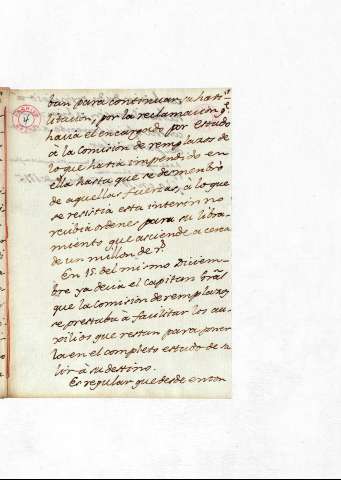 ban para continuar su habi-
litación, por la reclamacion qe.
hacia el encargado por estado
â la Comisión de remplazos de
lo que hasia impendido en
ella hasta que se desmenbró
de aquellas fuerzas, a lo que
se resistia esta interin no
recibia ordenes para su libra-
miento que asciende a cerca
de un millon de rs.
En 15. del mismo Diciem-
bre ya decia el capitan Gral
que la Comisión de remplazos
se prestaba à facilitar los au-
xilios que restan para poner
la en el completo estado de sa
lir à su destino.
Es regular que desde enton